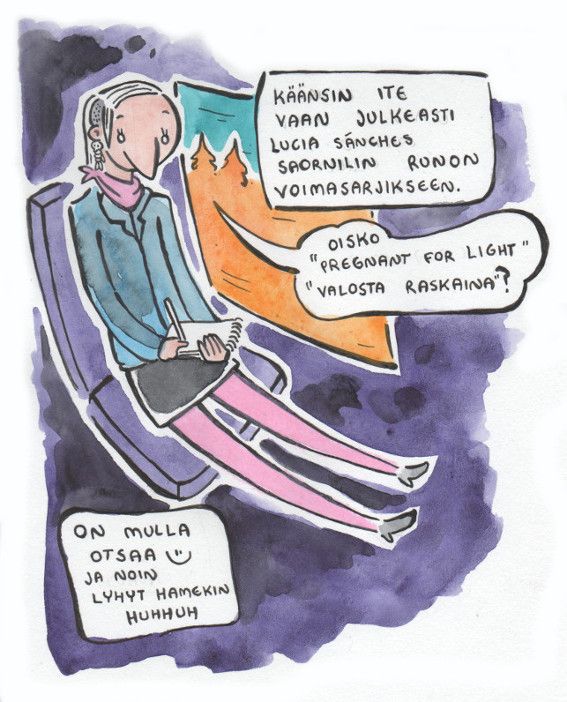 KÄÄNSIN ITE
VAAN JULKEASTI
LUCIA SÁNCHES
SAORNILIN RUNON
VOIMASARJIKSEEN.
OISKO
"PREGNANT FOR LIGHT"
"VALOSTA RASKAINA"?
ON MULLA
OTSAA
JA NOIN
LYHYT HAMEKIN
HUHHUH